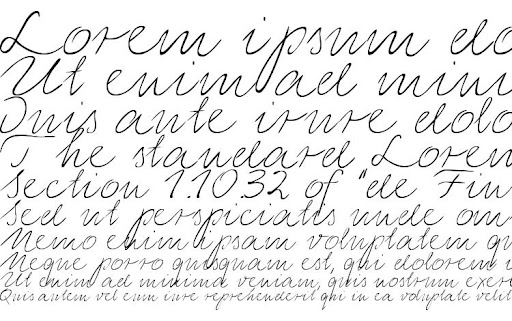 Lorem ipsum do
Ut enim ad mini
Duis aute irure dolo
The standard Loren
section 1.10.32 of "de Fin
Sed ut perspiciatis unde om
Nemo enim ipsam voluptatem qu
Neque porro quisquam est, qui dolorem i
Ut enim ad minima veniam, quis nostrum exerc
Quis autem vel eum iure reprehenderit qui in ea voluptate velit